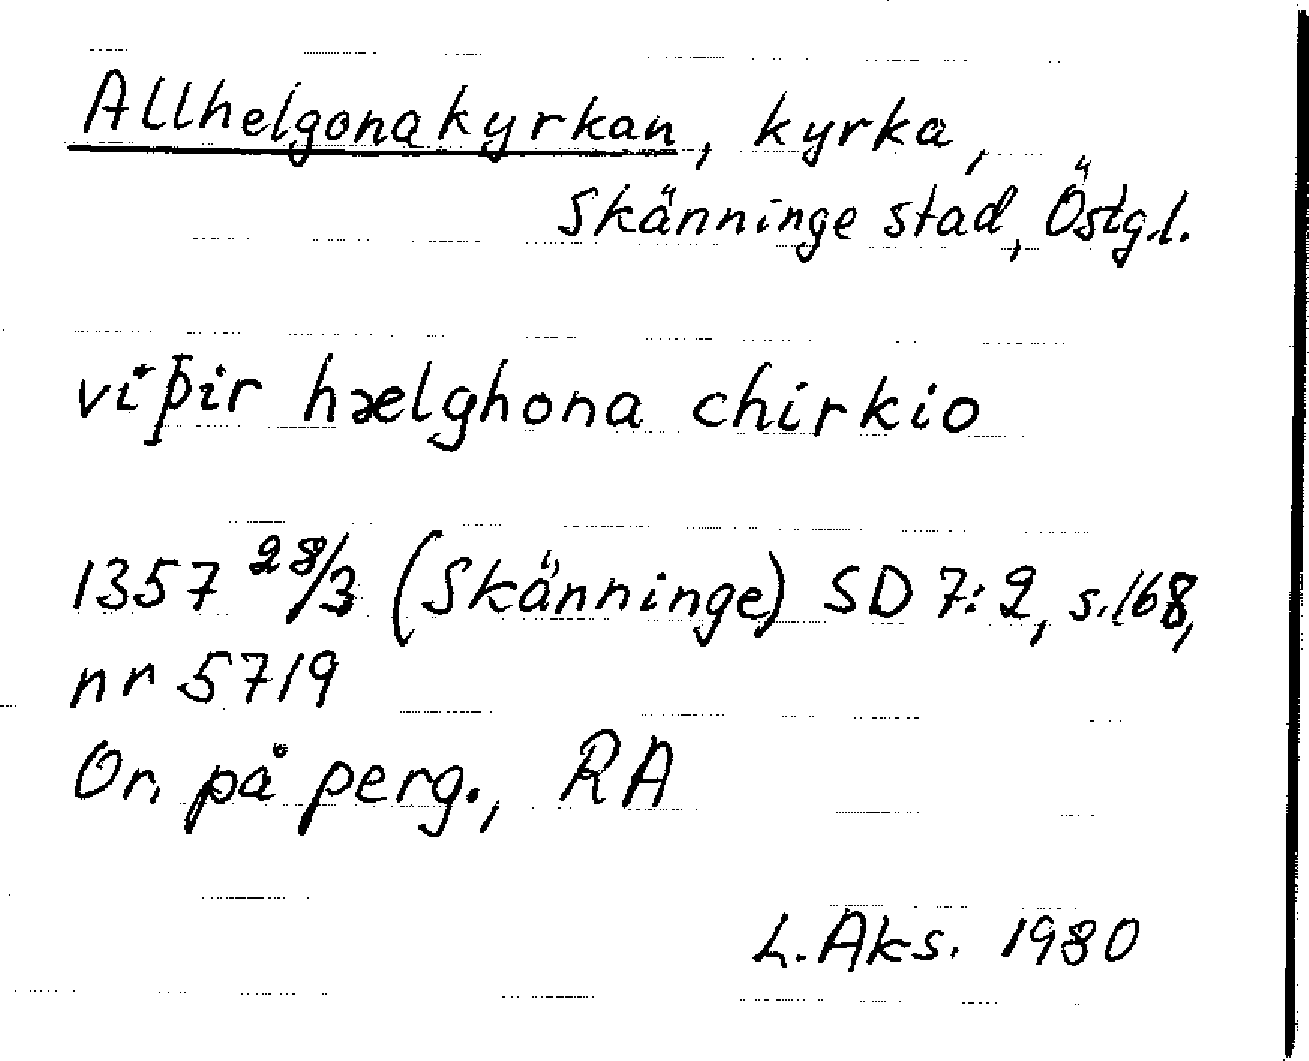 Allhelgonakyrkan, kyrka,
Skänninge stad, Östg.l.
viþir hælghona chirkio
1357 28/3 (Skänninge) SD 7:2, s.168,
nr 5719
Or. på perg., RA
L. Aks. 1980